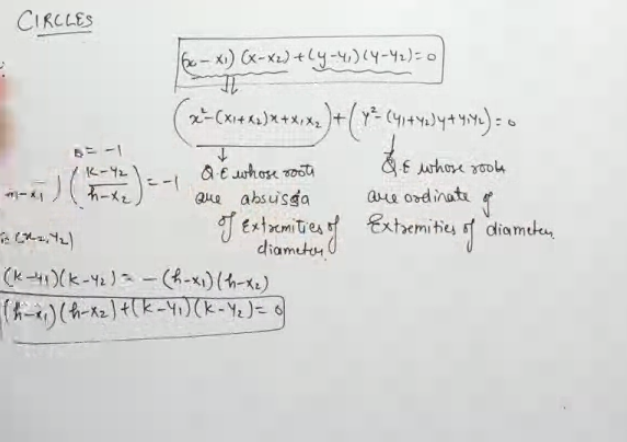 CIRCLES
(x-x₁)(x-x₂)+(y-y₁)(y-y₂)=0
(x²-(x₁+x₂)x+x₁x₂)+(y²-(y₁+y₂)y+y₁y₂)=0
= -1
(k-y₂/h-x₂) = -1
Q.E whose roots
are absissa
of Extremities of
diameter
Q.E whose roots
are ordinate of
Extremities of diameter
(x₂,y₂)
(k-y₁)(k-y₂) = -(h-x₁)(h-x₂)
(h-x₁)(h-x₂)+(k-y₁)(k-y₂)=0